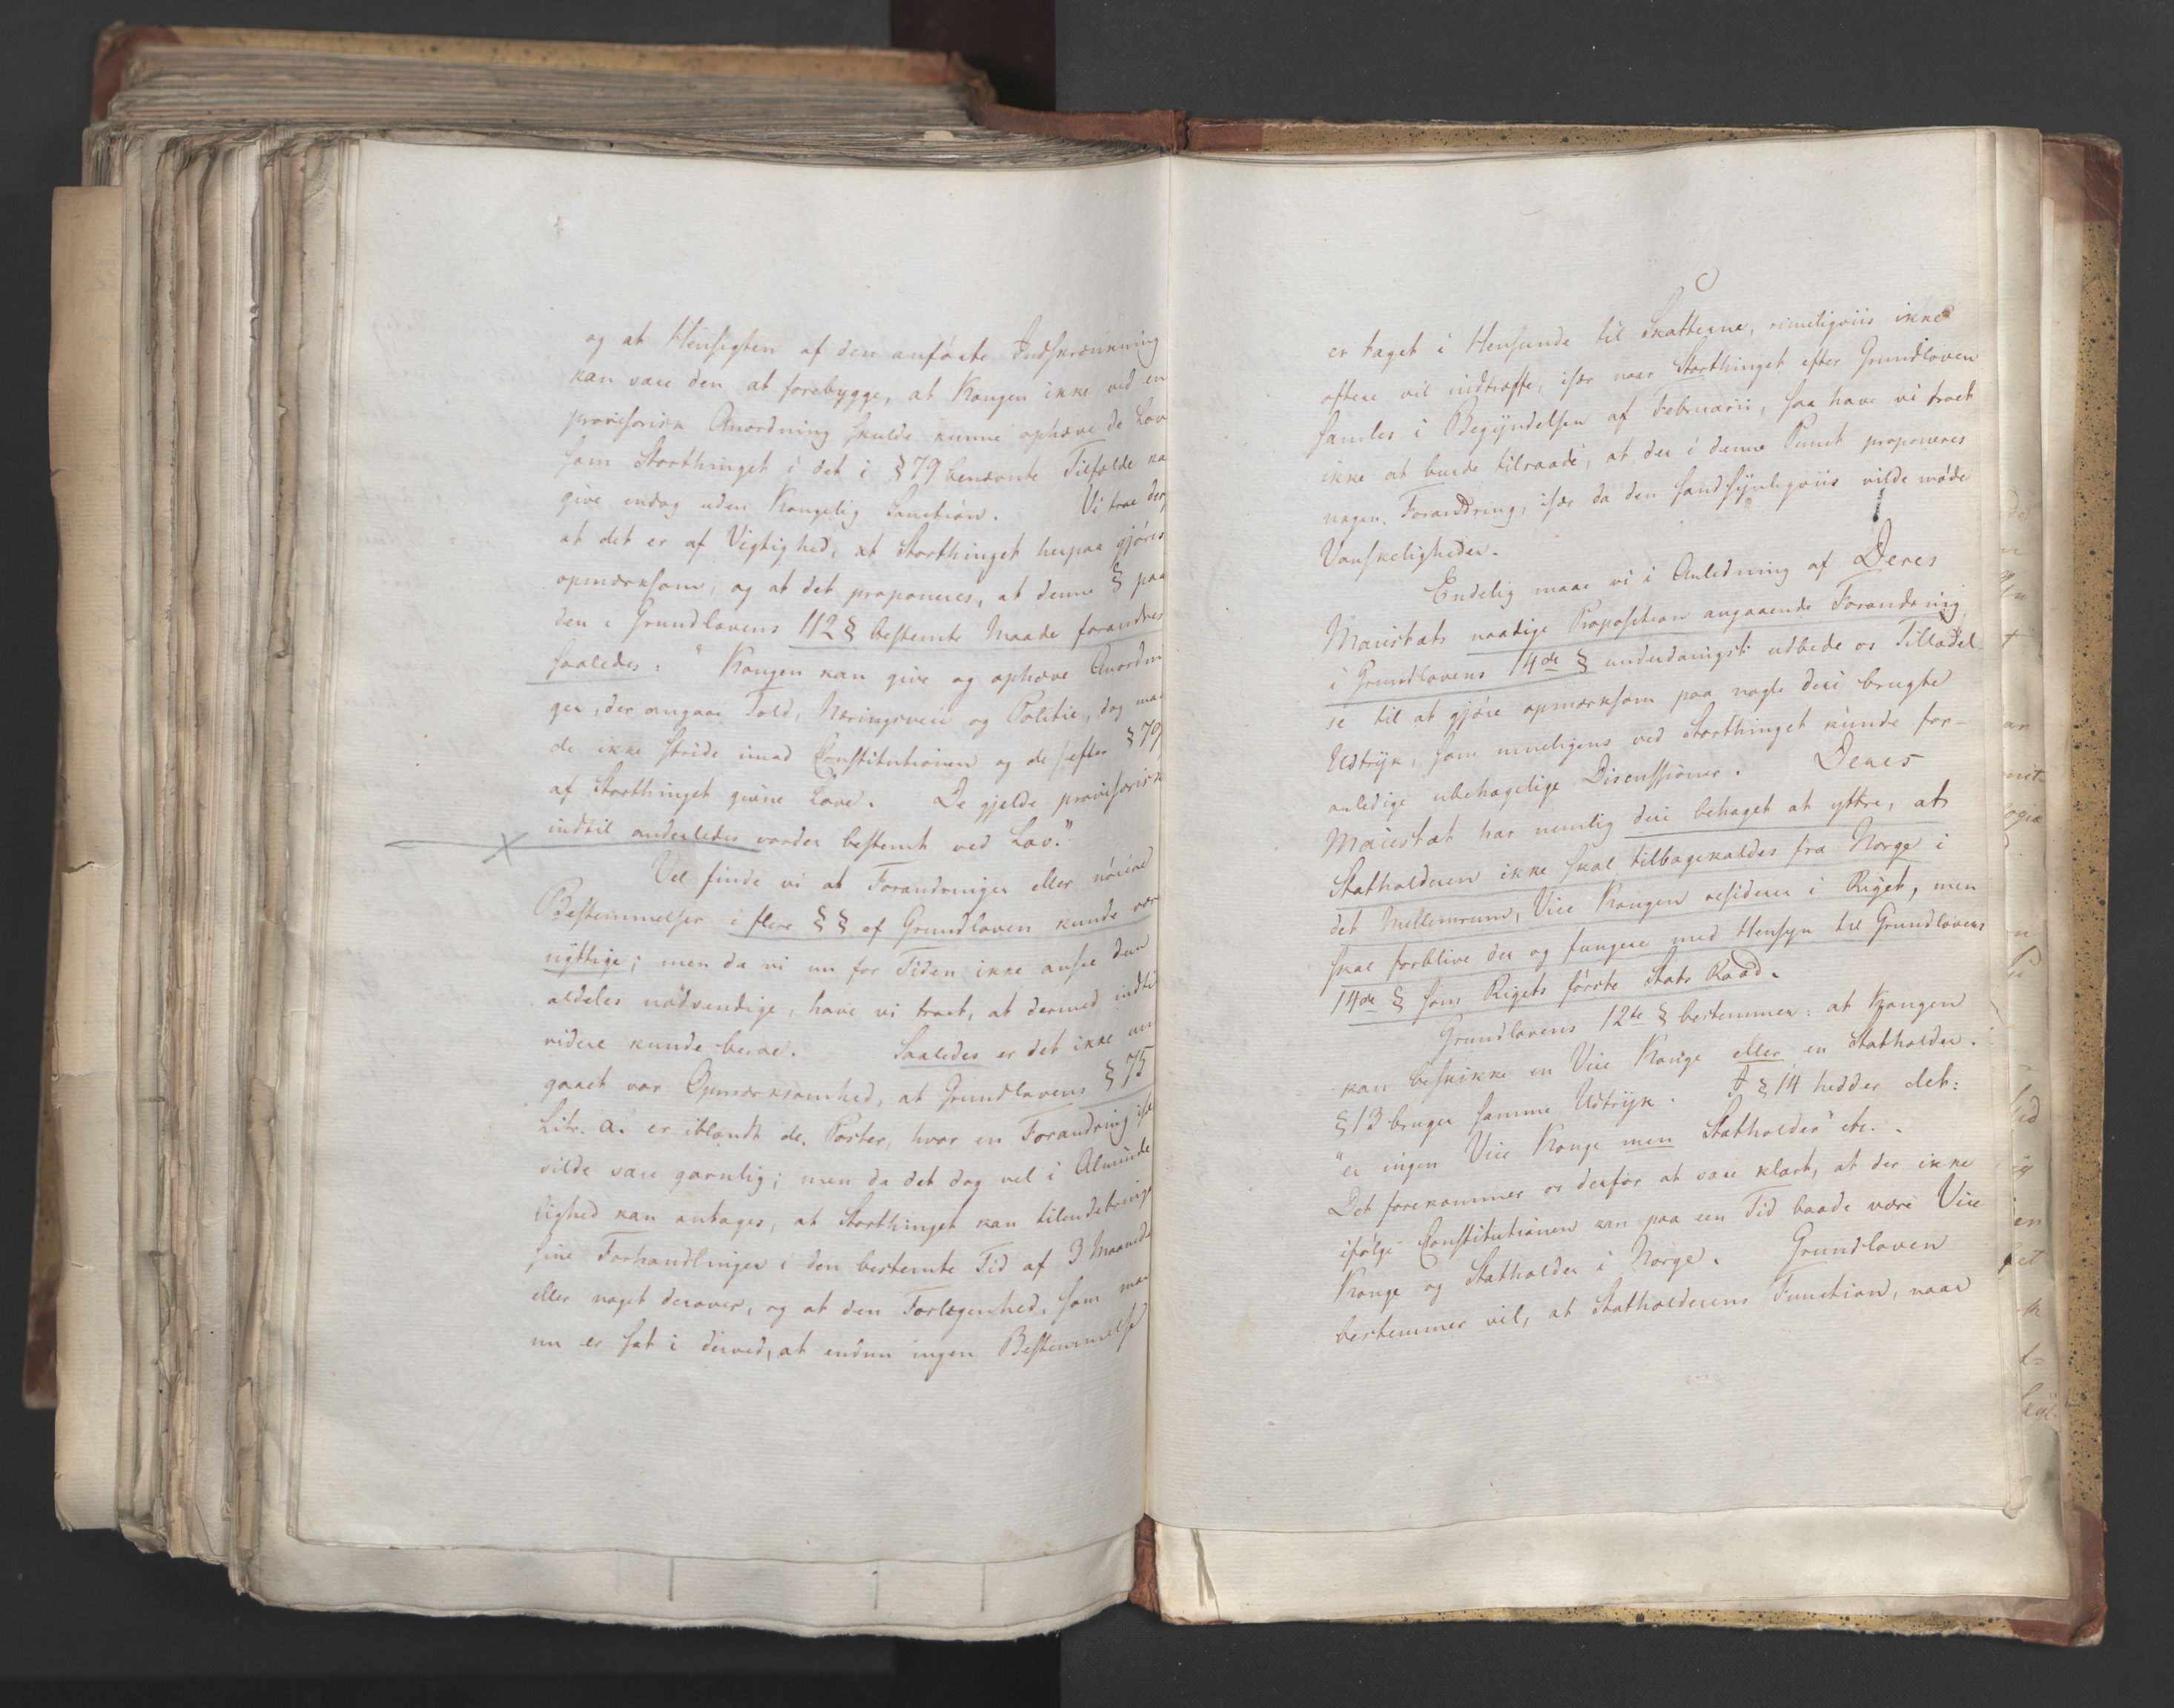 og at Hensigten af den anførte Indskrænkning
kan være den at forebygge, at Kongen ikke ved en
provisorisk Anordning skulde kunne ophæve de Lov
som Storthinget i det i § 79 benævnte Tilfælde ka
give endog uden Kongelig Sanction. Vi troe der
at det er af Vigtighed, at Storthinget herpaa gjøres
opmærksom, og at det proponeres, at denne § paa
den i Grundlovens 112 § bestemte Maade forandres
saaledes: "Kongen kan give og ophæve Anordni
ger, der angaae Told, Næringsveie og Politie, dog maa
de ikke stride imod Constitutionen og de efter § 79
af Storthinget givne Love. De gjelde provisorisk
indtil anderledes vorder bestemt ved Lov."
Vel finde vi at Forandringer eller nøiere
Bestemmelser i flere §§ af Grundloven kunde vær
nyttige; men da vi nu for Tiden ikke ansee dem
aldeles nødvendige, have vi troet, at dermed indtil
videre kunde beroe. Saaledes er det ikke un
gaaet vor Opmærksomhed, at Grundlovens § 75
Litr. a. er iblandt de Poster, hvor en Forandring
vilde være gavnlig; men da det dog vel i Alminde
lighed kan antages, at Storthinget kan tilendebringe
sine Forhandlinger i den bestemte Tid af 3 Maaneder
eller noget derover, og at den Forlegenhed, som man
nu er sat i derved, at endnu ingen Bestemmelse
er taget i Henseende til Skatterne, rimeligviis ikke
oftere vil indtræffe, især naar Storthinget efter Grundloven
samles i Begyndelsen af Februarii, saa have vi troet
ikke at burde tilraade, at der i denne Punct proponeres
nogen Forandring, især da den sandsynligviis vilde møde
Vanskeligheder.
Endelig maae vi i Anledning af Deres
Maiestæts naadige Proposition angaaende Forandring
i Grundlovens 14de § underdanigst udbede os Tilladel
se til at gjøre opmærksom paa nogle deri brugte
Udtryk, som mueligens ved Storthinget kunde for-
anledige ubehagelige Discussioner. Deres
Maiestæt har nemlig deri behaget at yttre, at
Statholderen ikke skal tilbagekaldes fra Norge i
det Mellemrum, Vice Kongen residerer i Riget, men
skal forblive der og fungere med Hensyn til Grundlovens
14de § som Rigets første Stats Raad.
Grundlovens 12te § bestemmer: at Kongen
kan beskikke en Vice Konge eller en Statholder.
§ 13 bruger samme Udtryk. I § 14 hedder det:
"er ingen Vice Konge men Statholder" etc.
Det forekommer os derfor at være klart, at der ikke
ifølge Constitutionen kan paa een Tid baade være Vice
Konge og Statholder i Norge. Grundloven
bestemmer vel, at Statholderens Function, naar